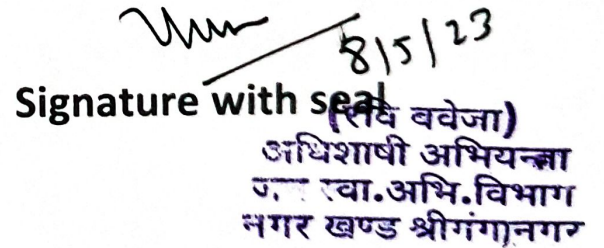 8/5/23
Signature with seal
(रवि बवेजा)
अधिशाषी अभियन्ता
स्वा.अभि.विभाग
नगर खण्ड श्रीगंगानगर